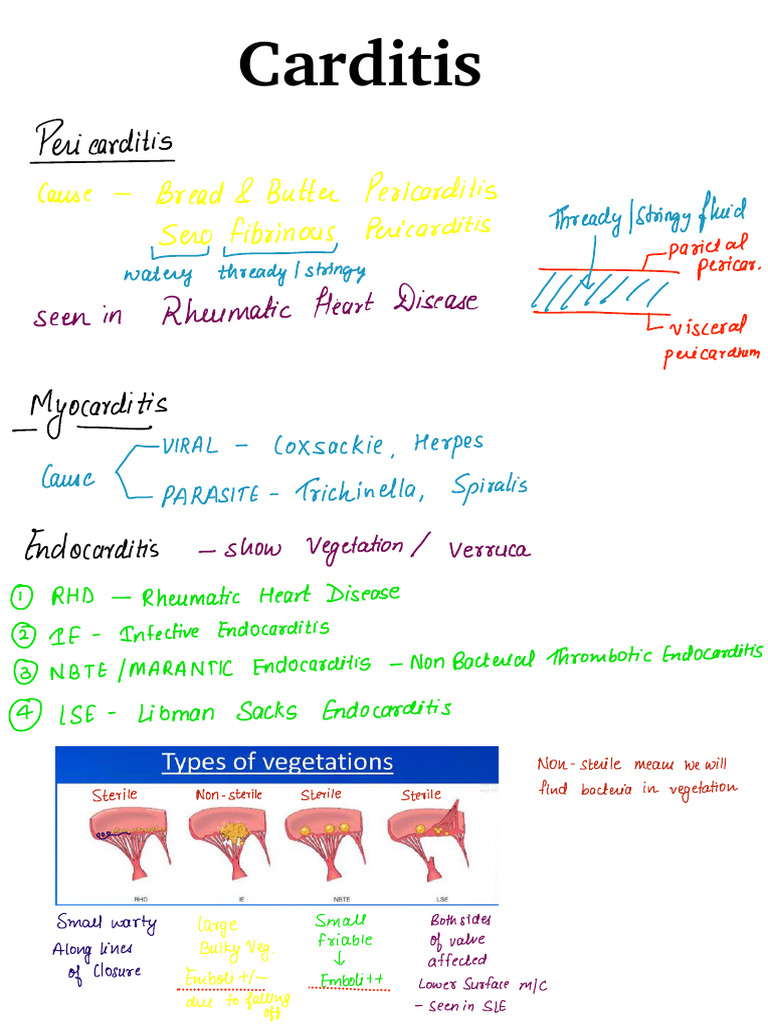 Carditis
Pericarditis
Cause - Bread & Butter Pericarditis
Sero fibrinous Pericarditis
watery thready / stringy
seen in Rheumatic Heart Disease
Thready / Stringy fluid
parietal
pericar.
visceral
pericardium
Myocarditis
Cause
VIRAL - Coxsackie, Herpes
PARASITE - Trichinella, Spiralis
Endocarditis - show vegetation / verruca
① RHD - Rheumatic Heart Disease
② IE - Infective Endocarditis
③ NBTE / MARANTIC Endocarditis - Non Bacterial Thrombotic Endocarditis
④ LSE - Libman Sacks Endocarditis
Types of vegetations
Sterile Non-sterile Sterile Sterile
RHD IE NBTE LSE
Non-sterile means we will
find bacteria in vegetation
Small warty
Along lines
of Closure
Large
Bulky Veg.
Emboli +/-
due to falling
off
Small
friable
↓
Emboli ++
Both sides
of valve
affected
Lower Surface m/c
- Seen in SLE